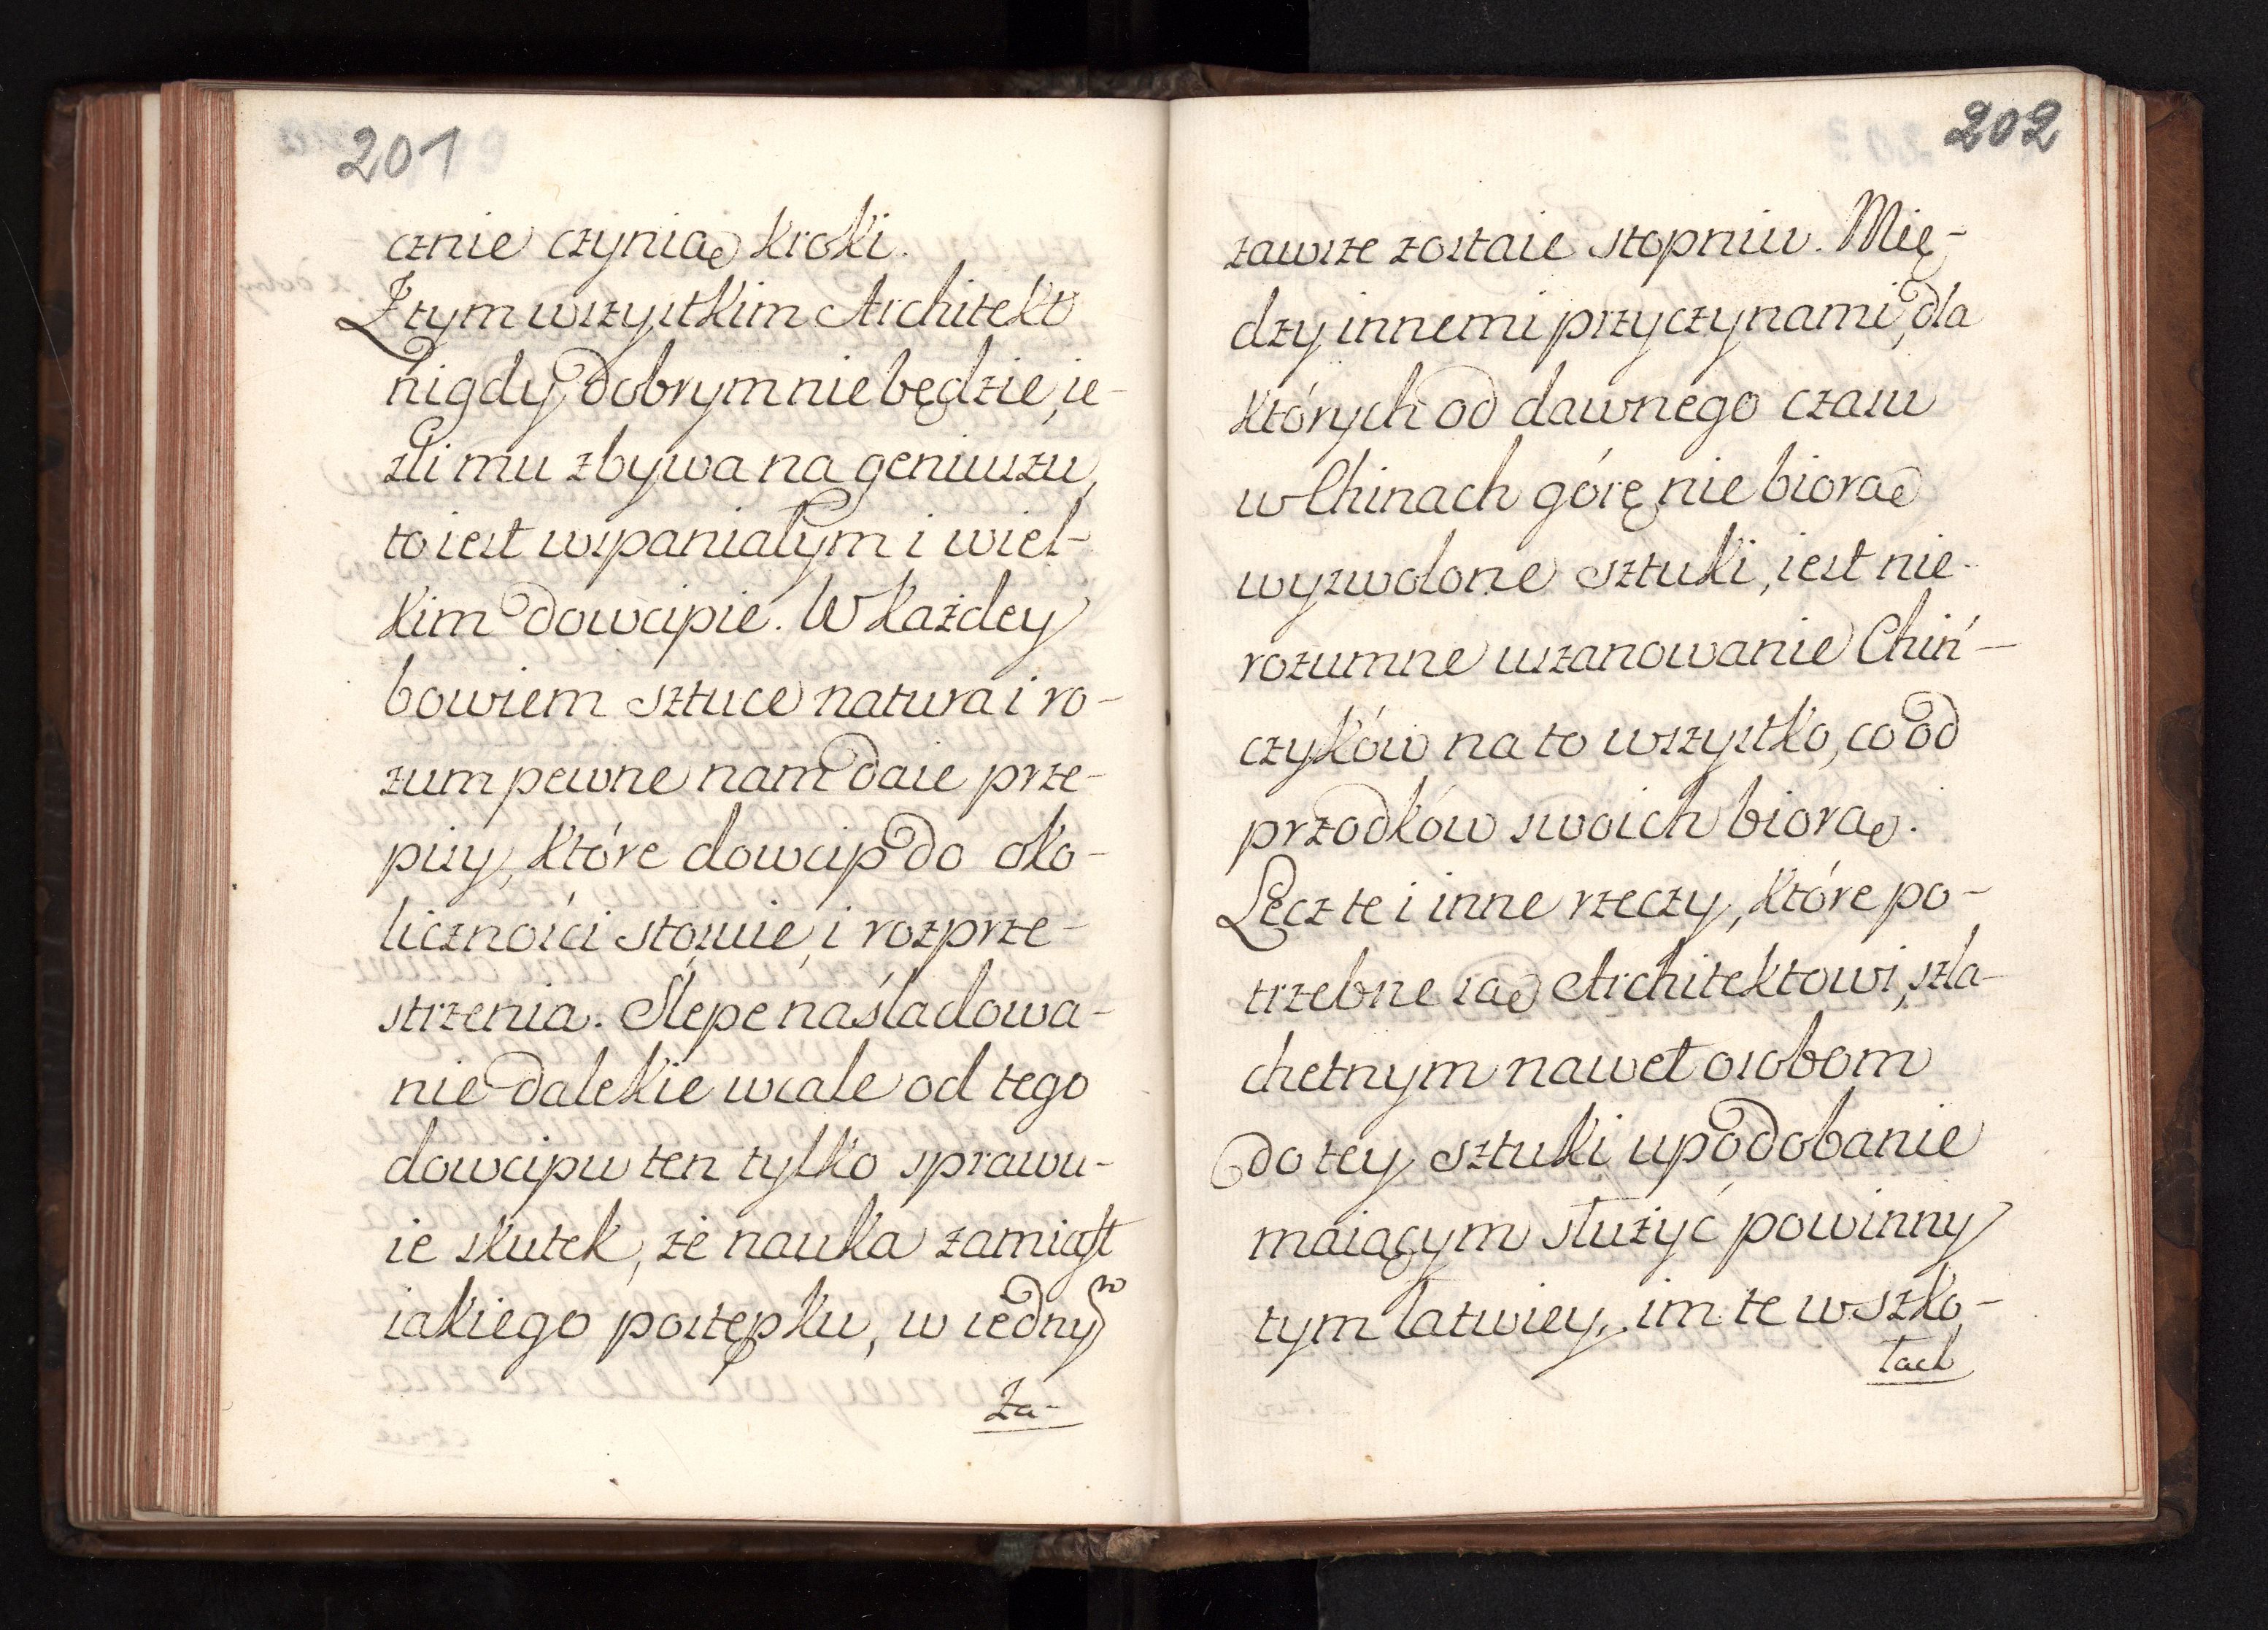 201
cznie czynią kroki.
Z tym wszystkim Architekt
nigdy dobrym nie będzie, ie-
źli mu zbywa na geniuszu,
to iest wspaniałym i wiel-
kim dowcipie. W każdey
bowiem sztuce natura i ro-
zum pewne nam daie prze-
pisy, które dowcip do oko-
liczności stósuie, i rozprze-
strzenia. Slepe naśladowa-
nie dalekie wcale od tego
dowcipu ten tylko sprawu-
ie skutek, że nauka zamiast
iakiego postępku, w iednym
za-
202
zawsze zostaie stopniu. Mię-
dzy innemi przyczynami, dla
których od dawnego czasu
w Chinach górę nie biorą
wyzwolone sztuki, iest nie-
rozumne uszanowanie Chiń-
czyków na to wszystko, co od
przodków swoich biorą.
Lecz te i inne rzeczy, które po-
trzebne są Architektowi, szla-
chetnym nawet osobom
do tey sztuki upodobanie
maiącym służyć powinny
tym łatwiey, im te w szko-
łach